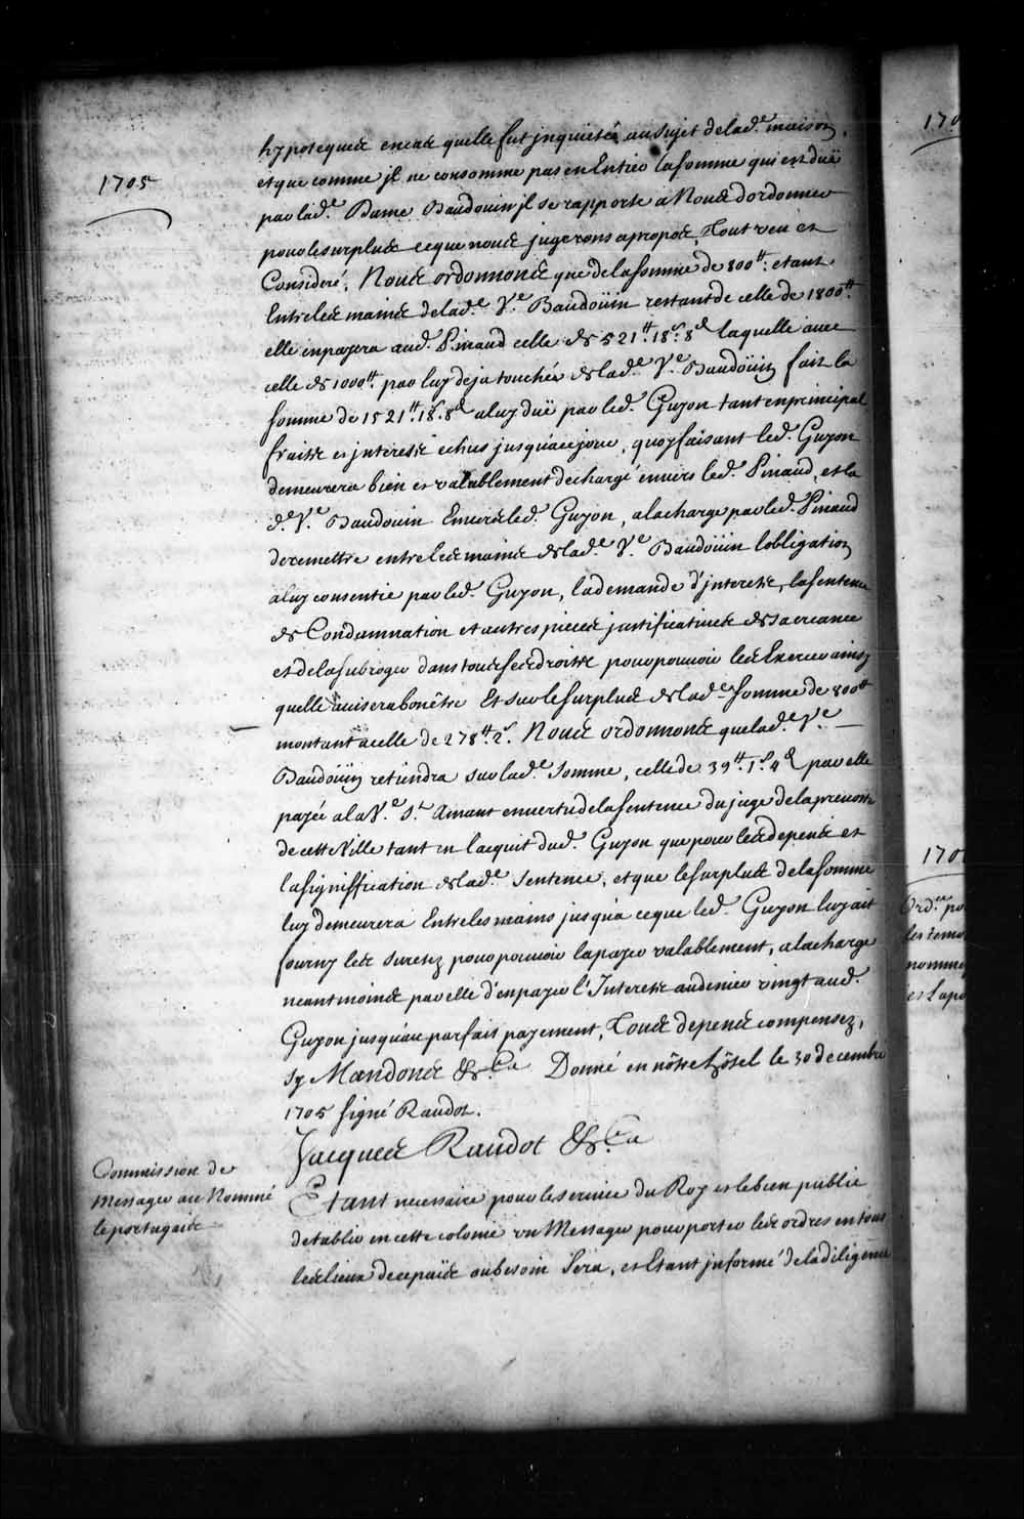 1705
hypotequée encas quelle fut jnquietée au sujet de lad.e maison,
et que comme jl ne consomme pas en Entier la somme qui est düe
par lad.e Dame Baudouin jl se rapporte a Nous d'ordonner
pour le surplus ce que nous jugerons apropos, Tout veu et
Consideré, Nous ordonnons que de la somme de 800tt. etant
Entre les mains de lad.e V.e Baudoüin restant de celle de 1800tt.
elle en payera aud. Pinaud celle de 521tt. 18s. 8d laquelle avec
celle de 1000tt. par luy deja touchée de lad.e V.e Baudoüin fait la
somme de 1521tt. 18s. 8d a luy düe par led. Guyon tant en principal
fraits et jnterests echus jusqu'a ce jour, quoy faisant led. Guyon
demeurera bien et valablement dechargé envers led. Pinaud, et la
d.e V.e Baudouin Envers led. Guyon, a la charge par led. Pinaud
de remettre entre les mains de lad.e V.e Baudoüin l'obligation
a luy consentie par led. Guyon, la demande d'jnterests, la sentence
de Condamnation et autres pieces justificatives de sa creance
et de la subroger dans tous ses droits pour pouvoir les Exercer ainsy
quelle avisera bon être Et sur le surplus de lad.e somme de 800tt
montant a celle de 278tt. 2s. Nous ordonnons que lad.e V.e
Baudoüin retiendra sur lad.e somme, celle de 39tt. 1s. 4d par elle
payée a la V.e S.t Amant en vertu de la sentence du juge de la prevosté
de cette Ville tant en l'acquit dud. Guyon que pour les depens et
la signiffication de lad.e sentence, et que le surplus de la somme
luy demeurera Entre les mains jusqu'a ce que led. Guyon luy ait
fourny les suretez pour pouvoir la payer valablement, a la charge
neantmoins par elle d'en payer l'Interest au denier vingt aud.
Guyon jusqu'au parfait payement, Tous depens compensez,
sy Mandons &c.a Donné en nôtre hôtel le 30 decembre
1705 signé Raudot.
Jacques Raudot &c.a
Commission de
Messager au Nommé
le portugais
Etant necessaire pour le service du Roy et le bien public
d'etablir en cette colonie un Messager pour porter les ordres en tous
les lieux de ce païs ou besoin sera, et Etant jnformé de la diligence
170
170
Ord.ce po
les temo
nommé
et Lapo